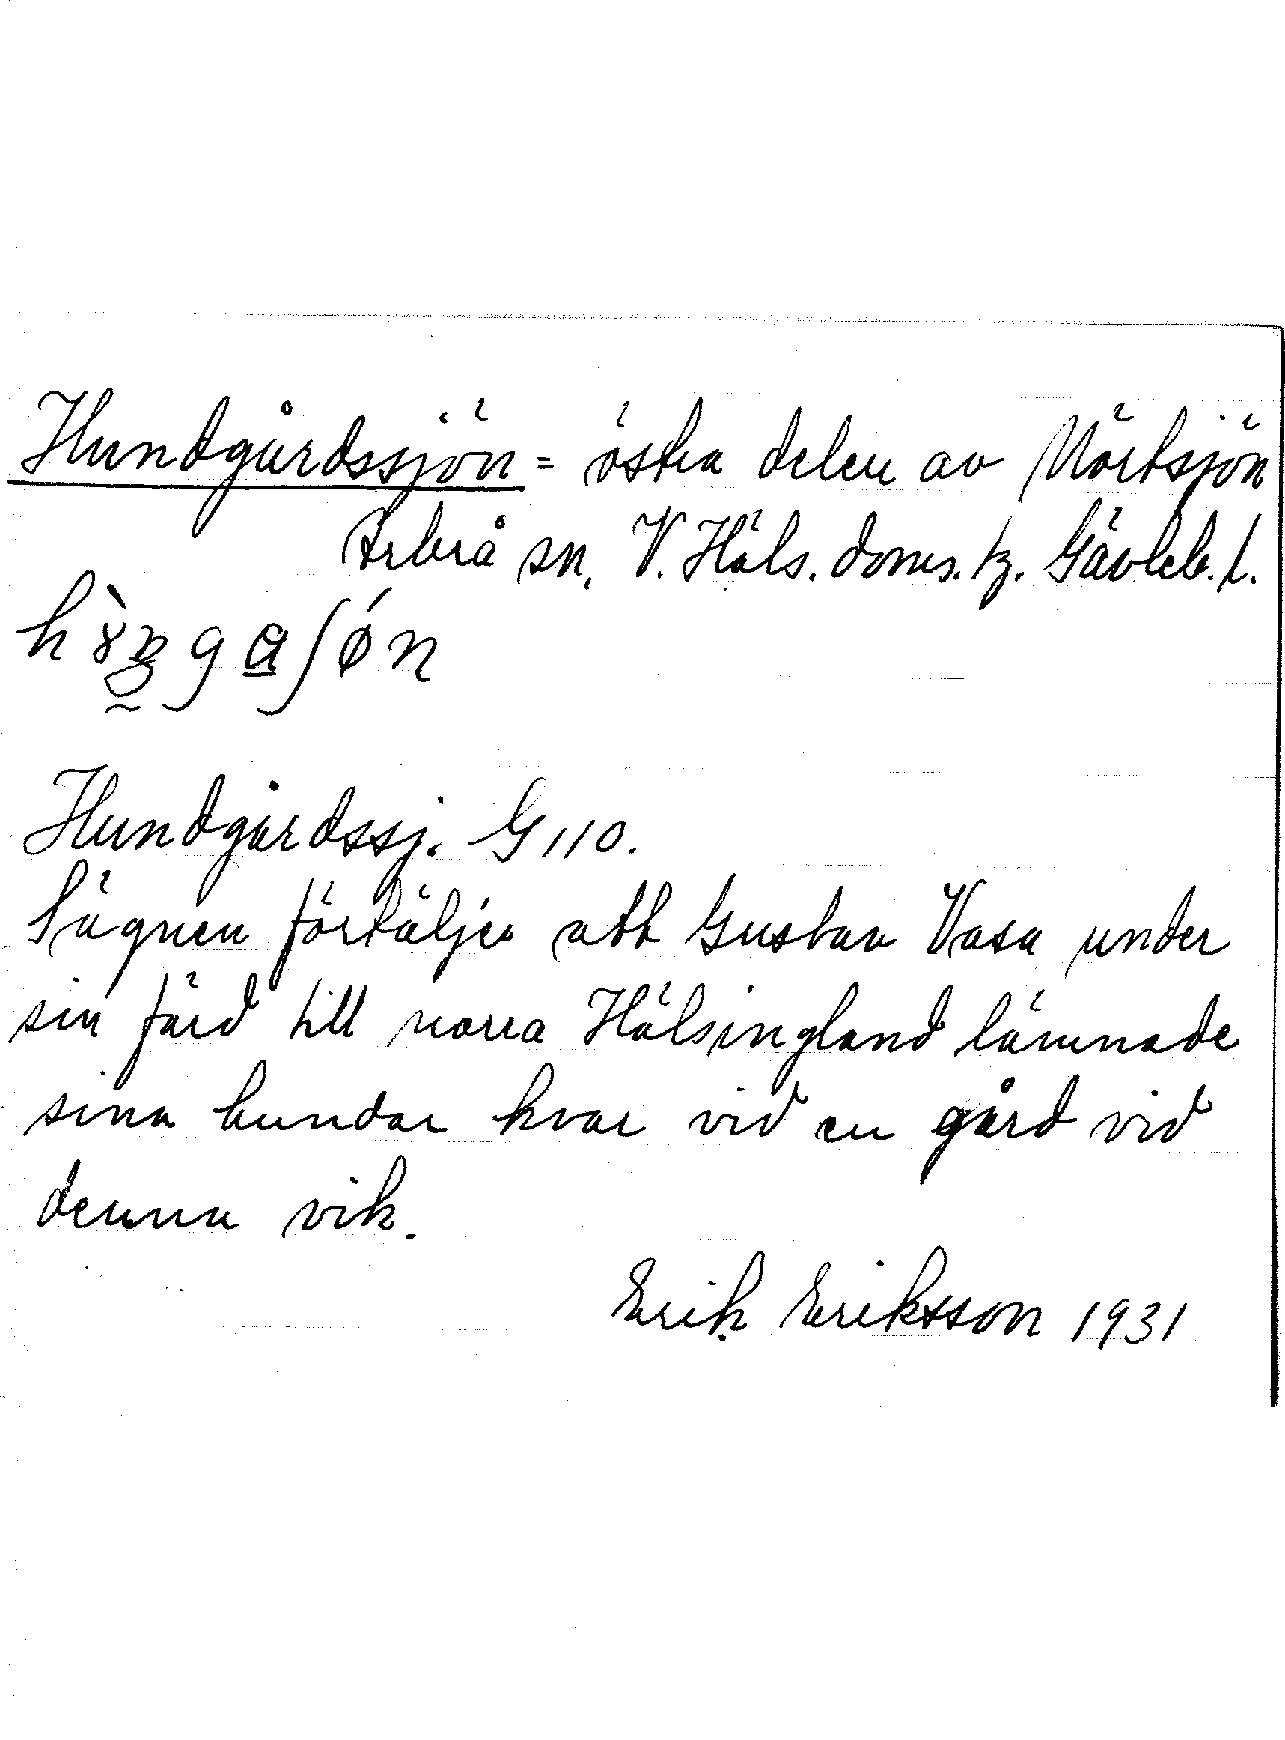 Hundgårdssjön = östra delen av Mörtsjön
Arbrå sn. V. Häls. doms. tg. Gävleb. l.
Hundgårdssj. G 110.
Sägnen förtäljer att Gustav Vasa under
sin färd till norra Hälsingland lämnade
sina hundar kvar vid en gård vid
denna vik.
Erik Eriksson 1931